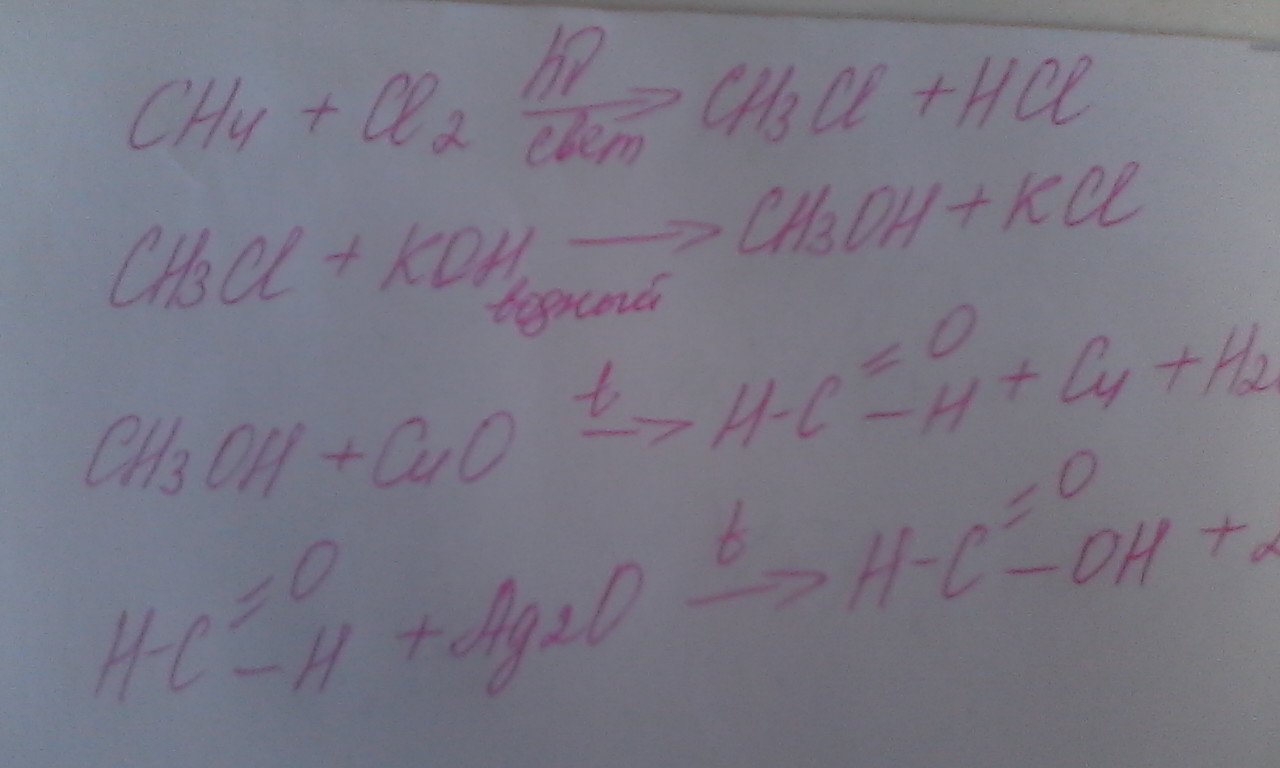 CH4 + Cl2 hν → свет CH3Cl + HCl
CH3Cl + KOH водный → CH3OH + KCl
CH3OH + CuO t → H-C =O -H + Cu + H2
H-C =O -H + Ag2O t → H-C =O -OH + 2